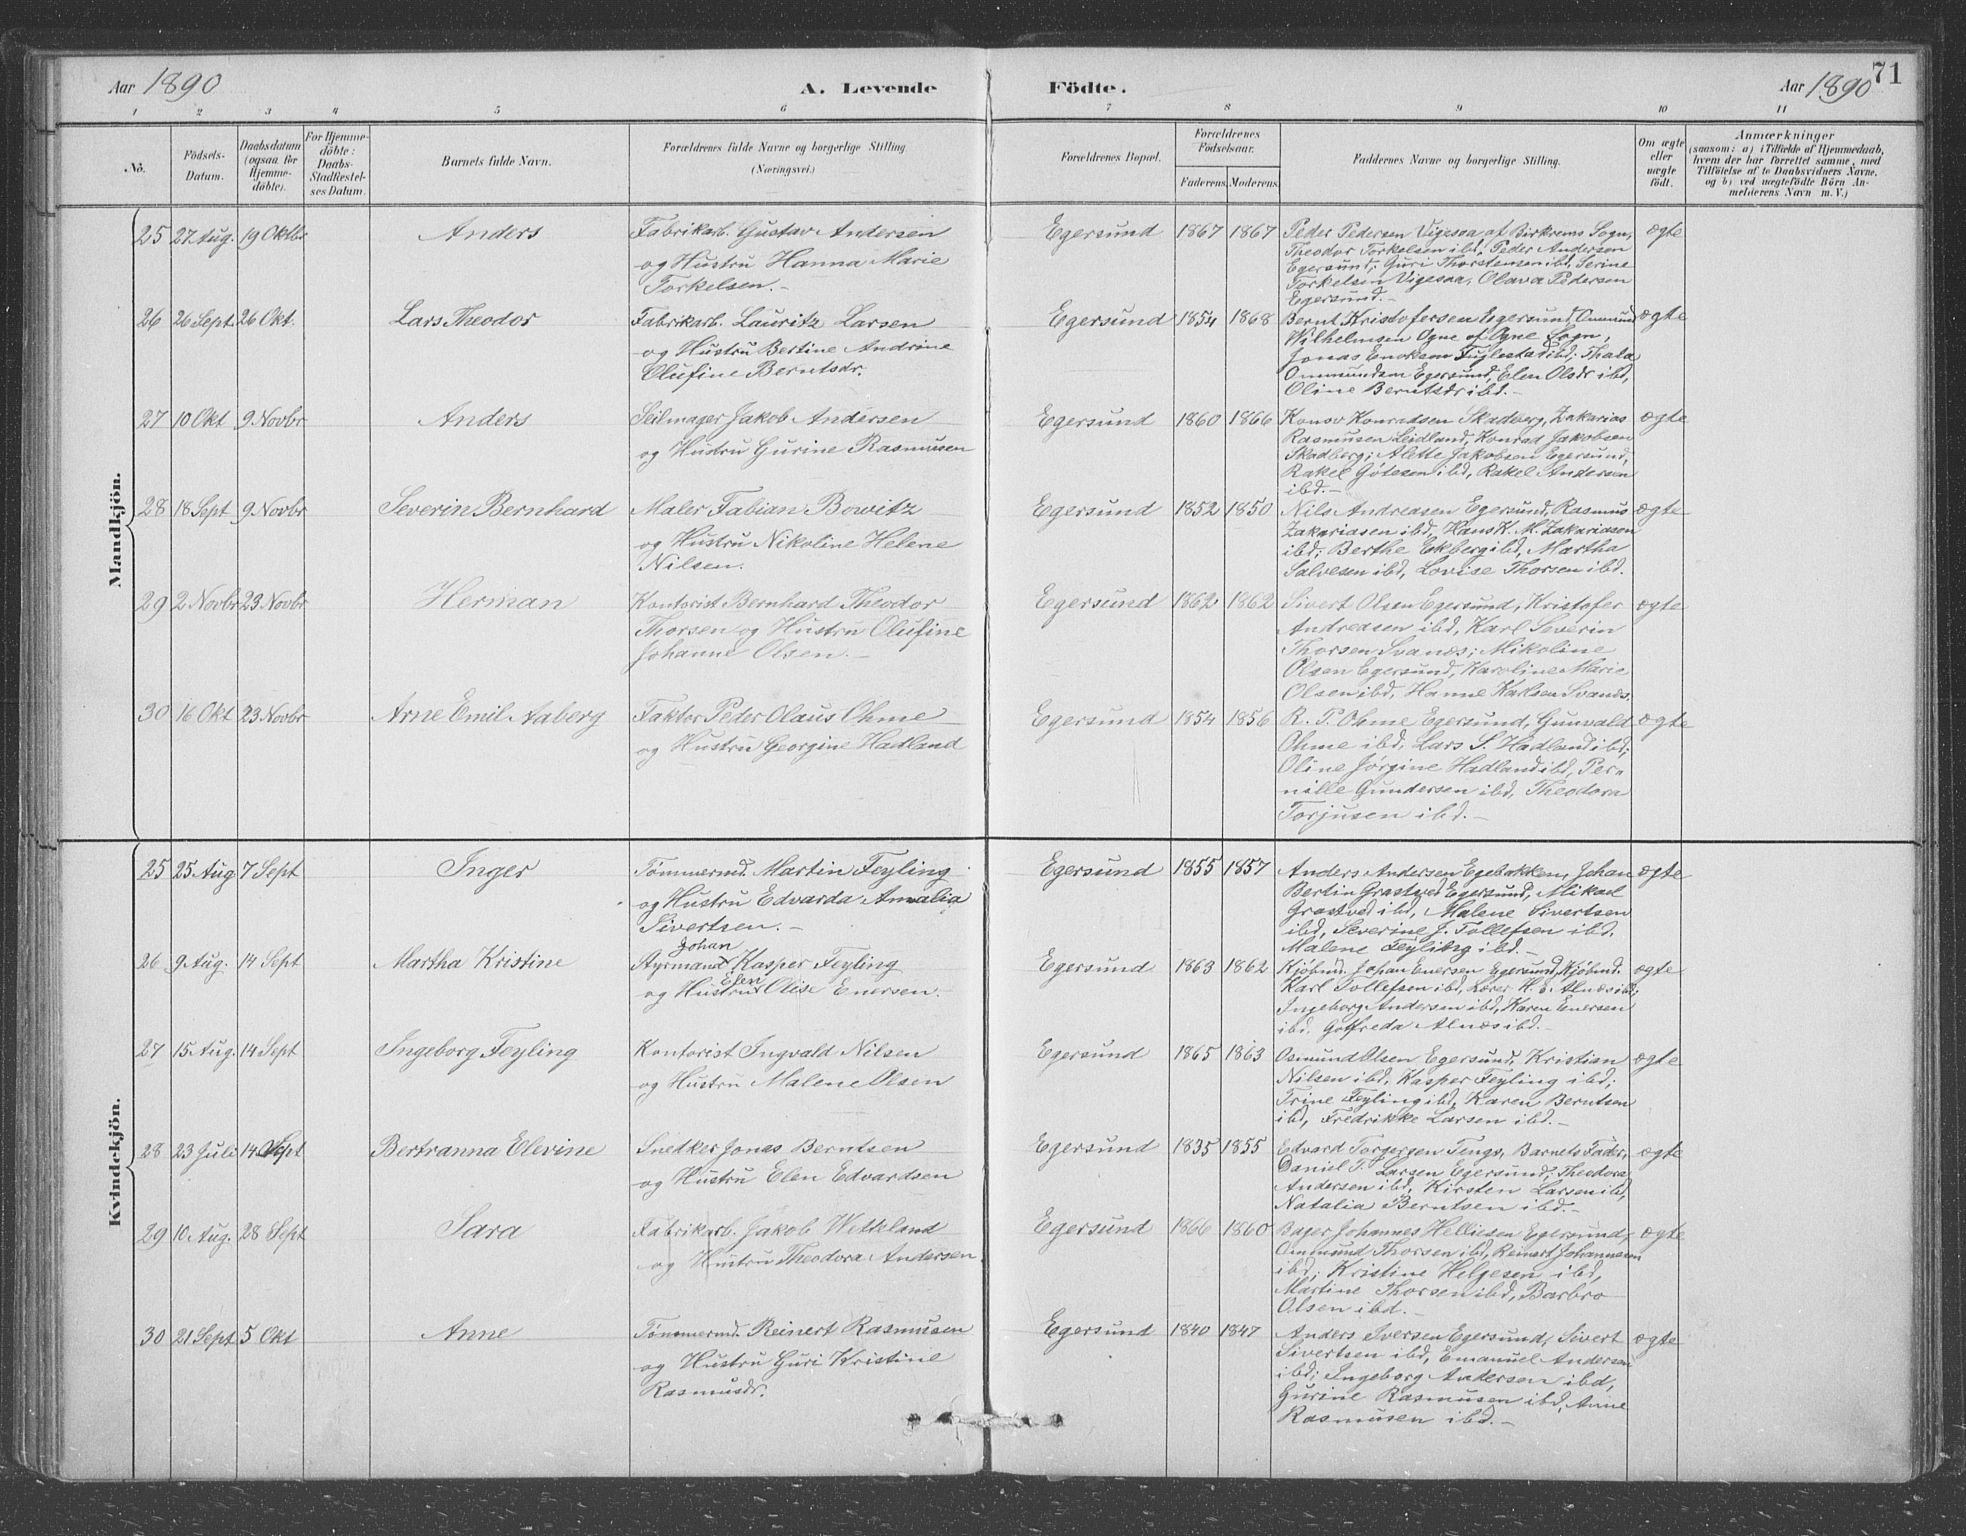 Aar 1890 A. Levende Födte. Aar 1890 71
1 2 3 4 5 6 7 8 9 10 11
No.
Födsels-
Datum.
Daabsdatum
(ogsaa for
Hjemme-
döbte).
For Hjemme-
döbte:
Daabs-
Stadfæstel-
ses Datum.
Barnets fulde Navn.
Forældrenes fulde Navne og borgerlige Stilling
(Næringsvei.)
Forældrenes Bopæl.
Forældrenes
Födselsaar.
Faderens. Moderens.
Faddernes Navne og borgerlige Stilling.
Om ægte
eller
uægte
födt.
Anmærkninger
(saasom: a) i Tilfælde af Hjemmedaab,
hvem der har forrettet samme, med
Tilföielse af to Daabsvidners Navne,
og b) ved uægtefödte Börn An-
melderens Navn m. V.)
Mandkjön.
25 27 Aug. 19 Oktbr Anders
Fabrikarb. Gustav Andersen
og Hustru Hanna Marie
Torkelsen.-
Egersund 1867 1867
Peder Pedersen Vigesaa af Birkrems Sogn,
Theodor Torkelsen ibd, Peder Andersen
Egersund; Guri Thorstensen ibd, Serine
Torkelsen Vigesaa, Olava Pedersen
Egersund.-
ægte
26 26 Sept. 26 Okt. Lars Theodor
Fabrikarb. Lauritz Larsen
og Hustru Bertine Andrine
Olufine Berntsdr.
Egersund 1854 1868
Bernt Kristofersen Egersund, Ommund
Vilhelmsen Ogne af Ogne Sogn,
Jonas Enoksen Fuglestad ibd; Thala
Ommundsen Egersund, Elen Olsdr ibd,
Oline Berntsdr ibd.-
ægte
27 10 Okt 9 Novbr Anders
Seilmager Jakob Andersen
og Hustru Gurine Rasmussen
Egersund 1860 1866
Konow Konradsen Skadberg, Zakarias
Rasmussen Leidland, Konrad Jakobsen
Skadberg; Alette Jakobsen Egersund,
Rakel Gøtesen ibd, Rakel Andersen
ibd.-
ægte
28 18 Sept 9 Novbr Severin Bernhard
Maler Fabian Bowitz
og Hustru Nikoline Helene
Nilsen.
Egersund 1852 1850
Nils Andreasen Egersund, Rasmus
Zakariasen ibd, Hans K. M. Zakariasen
ibd; Berthe Ekberg ibd, Martha
Salvesen ibd, Lovise Thorsen ibd.
ægte
29 2 Novbr 23 Novbr Herman
Kontorist Bernhard Theodor
Thorsen og Hustru Olufine
Johanne Olsen.-
Egersund 1862 1862
Sivert Olsen Egersund, Kristofer
Andreasen ibd, Karl Severin
Thorsen Svanes; Mikoline
Olsen Egersund, Karoline Marie
Olsen ibd, Hanne Karlsen Svanes.
ægte
30 16 Okt 23 Novbr Arne Emil Aaberg
Faktor Peder Olaus Ohme
og Hustru Georgine Hadland
Egersund 1854 1856
R. P. Ohme Egersund, Gunvald
Ohme ibd, Lars S. Hadland ibd;
Oline Jørgine Hadland ibd, Per-
nille Gundersen ibd, Theodora
Torjusen ibd.-
ægte
Kvindekjön.
25 25 Aug 7 Sept Inger
Tømmermd. Martin Feyling
og Hustru Edvarda Amalia
Sivertsen.-
Egersund 1855 1857
Anders Andersen Egebakken, Johan
Bertin Grastved Egersund, Mikael
Grastved ibd, Malene Sivertsen
ibd, Severine J. Tollefsen ibd,
Malene Feyling ibd.-
ægte
26 9 Aug. 14 Sept Martha Kristine
Johan
Styrmand Kasper Feyling
Elen
og Hustru Olise Enersen.
Egersund 1863 1862
Kjøbmd. Johan Enersen Egersund, Kjøbmd.
Karl Tollefsen ibd, Lærer H. E. Alnæs ibd;
Ingeborg Andersen ibd, Karen Enersen
ibd. Gotfreda Alnæs ibd.-
ægte
27 15 Aug. 14 Sept Ingeborg Feyling
Kontorist Ingvald Nilsen
og Hustru Malene Olsen
Egersund 1865 1863
Osmund Olsen Egersund, Kristian
Nilsen ibd, Kasper Feyling ibd;
Trine Feyling ibd, Karen Berntsen
ibd, Fredrikke Larsen ibd.-
ægte
28 23 Juli 14 Sept Bertranna Elevine
Snedker Jonas Berntsen
og Hustru Elen Edvardsen
Egersund 1835 1855
Edvard Torgersen Tengs, Barnets Fader,
Daniel T. Larsen Egersund; Theodora
Andersen ibd, Kirsten Larsen ibd,
Natalia Berntsen ibd.-
ægte
29 10 Aug. 28 Sept Sara
Fabrikarb. Jakob Wetteland
og Hustru Theodora Andersen
Egersund 1866 1860
Bager Johannes Helliesen Egersund,
Ommund Thorsen ibd, Reinert Johannesen
ibd; Kristine Helgesen ibd,
Martine Thorsen ibd, Barbro
Olsen ibd.-
ægte
30 21 Sept 5 Okt Anne
Tømmermd. Reinert Rasmussen
og Hustru Guri Kristine
Rasmusdr.
Egersund 1840 1847
Anders Iversen Egersund, Sivert
Sivertsen ibd, Emanuel Andersen
ibd; Ingeborg Andersen ibd,
Gurine Rasmussen ibd, Anne
Rasmussen ibd.-
ægte